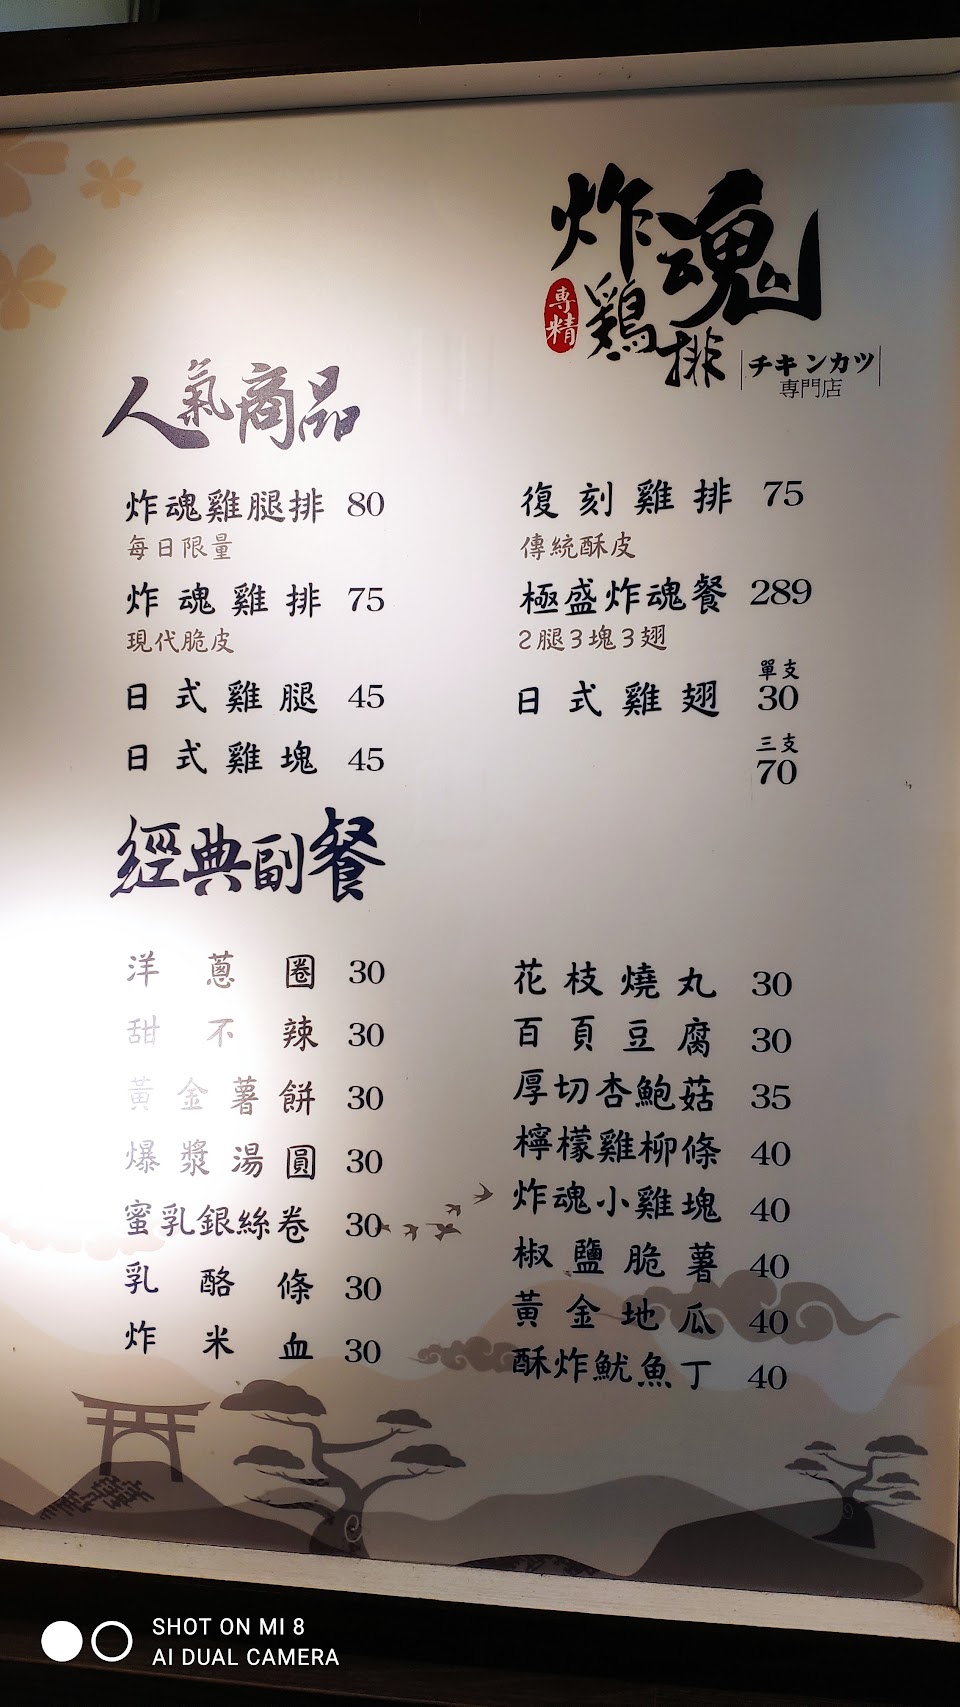 炸魂
專精
鷄排
チキンカツ
専門店
人氣商品
炸魂雞腿排 80
每日限量
炸魂雞排 75
現代脆皮
日式雞腿 45
日式雞塊 45
復刻雞排 75
傳統酥皮
極盛炸魂餐 289
2腿3塊3翅
日式雞翅 單支 30
三支 70
經典副餐
洋蔥圈 30
甜不辣 30
黃金薯餅 30
爆漿湯圓 30
蜜乳銀絲卷 30
乳酪條 30
炸米血 30
花枝燒丸 30
百頁豆腐 30
厚切杏鮑菇 35
檸檬雞柳條 40
炸魂小雞塊 40
椒鹽脆薯 40
黃金地瓜 40
酥炸魷魚丁 40
SHOT ON MI 8
AI DUAL CAMERA